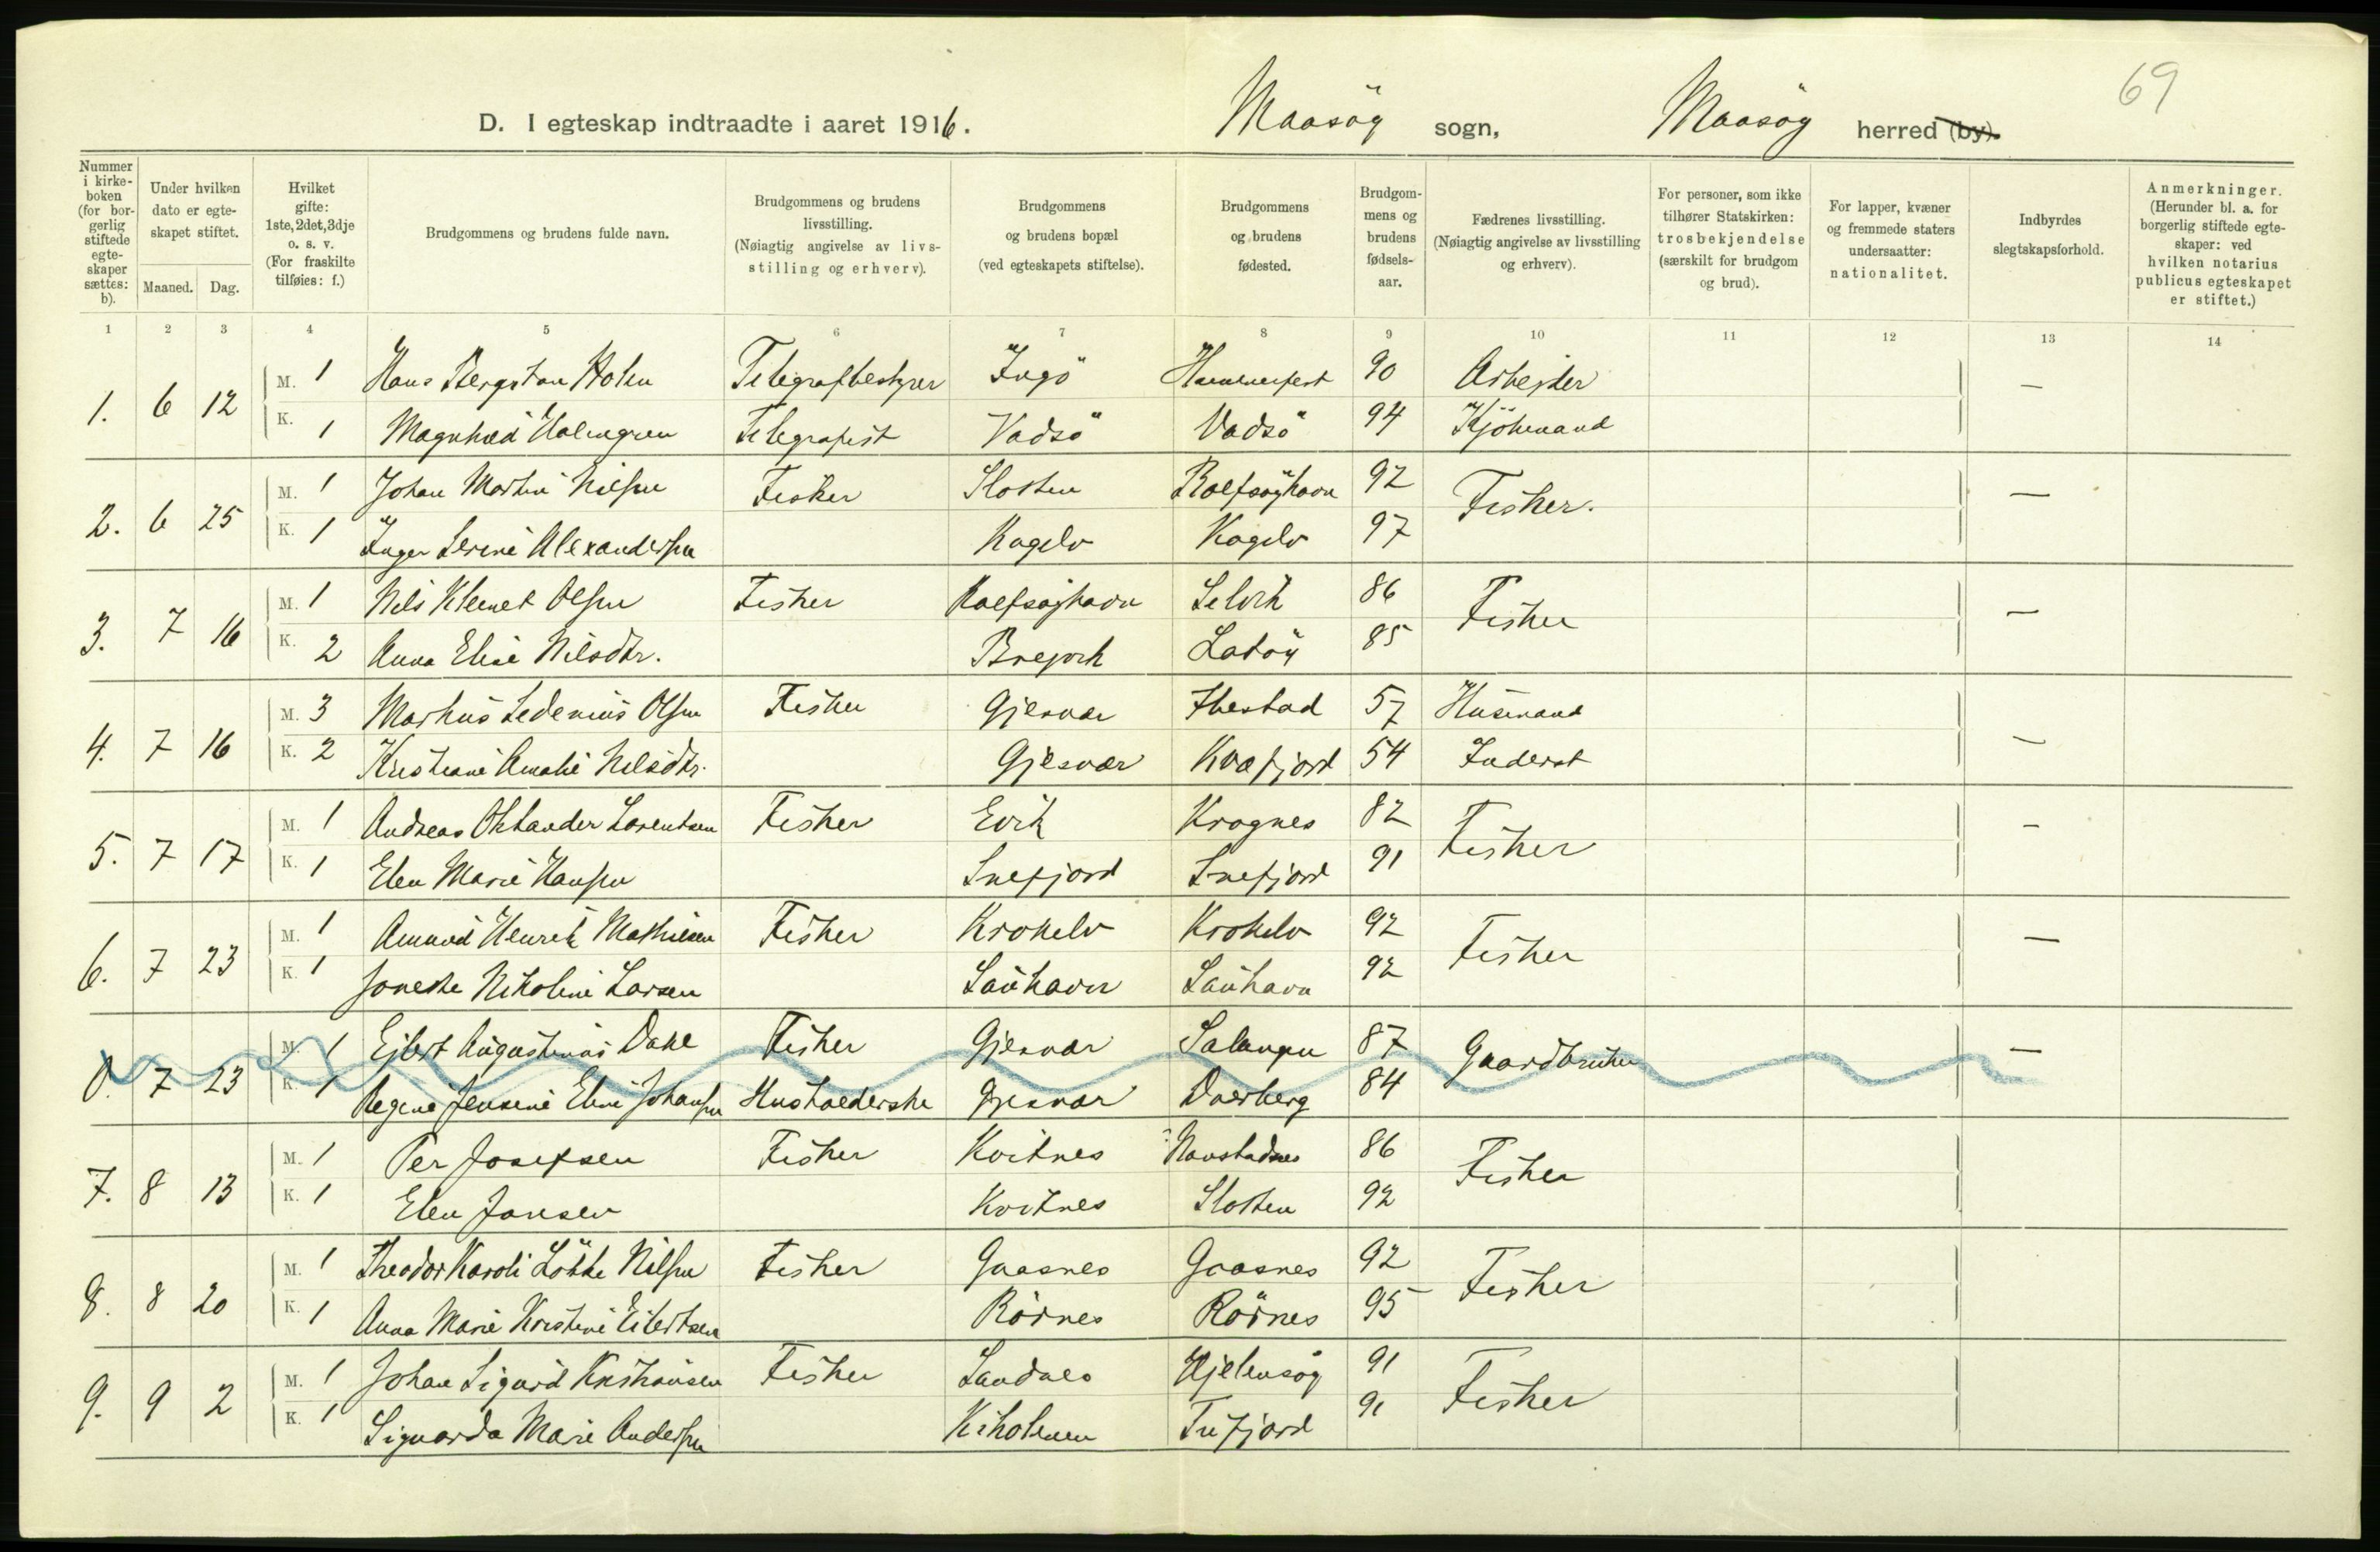 69
D. I egteskap indtraadte i aaret 1916. Maasöy sogn, Maasöy herred (by).
Nummer i kirke-boken (for bor-gerlig stiftede egte-skaper sættes: b).
Under hvilken dato er egte-skapet stiftet.
Maaned. Dag.
Hvilket gifte: 1ste, 2det, 3dje o. s. v. (For fraskilte tilføies: f.)
Brudgommens og brudens fulde navn.
Brudgommens og brudens livsstilling. (Nøiagtig angivelse av livs-stilling og erhverv).
Brudgommens og brudens bopæl (ved egteskapets stiftelse).
Brudgommens og brudens fødested.
Brudgom-mens og brudens fødsels-aar.
Fædrenes livsstilling. (Nøiagtig angivelse av livsstilling og erhverv).
For personer, som ikke tilhører Statskirken: trosbekjendelse (særskilt for brudgom og brud).
For lapper, kvæner og fremmede staters undersaatter: nationalitet.
Indbyrdes slegtskapsforhold.
Anmerkninger. (Herunder bl. a. for borgerlig stiftede egte-skaper: ved hvilken notarius publicus egteskapet er stiftet.)
1 2 3 4 5 6 7 8 9 10 11 12 13 14
1. 6 12 M. 1 Hans Bergstan Holm Telegrafbestyrer Ingö Hammerfest 90 Arbejder —
K. 1 Magnhild Holmgren Telegrafist Vadsö Vadsö 94 Kjöbmand
2. 6 25 M. 1 Johan Martin Nilsen Fisker Slotten Rolfsöyhavn 92 Fisker. —
K. 1 Inger Serine Alexandersen Kagelv Kagelv 97
3. 7 16 M. 1 Nils Klemet Olsen Fisker Rolfsöyhavn Selvik 86 Fisker —
K. 2 Anna Elise Nilsdtr. Brejvik Latöy 85
4. 7 16 M. 3 Markus Sedenius Olsen Fisker Gjesvær Ibestad 57 Husmand —
K. 2 Kristiane Amalie Nilsdtr. Gjesvær Kvæfjord 54 Inderst
5. 7 17 M. 1 Andreas Oktander Lorentsen Fisker Evik Krognes 82 Fisker —
K. 1 Elen Marie Hansen Snefjord Snefjord 91
6. 7 23 M. 1 Amund Henrik Mathisen Fisker Krokelv Krokelv 92 Fisker —
K. 1 Jonette Nikoline Larsen Sauhavn Sauhavn 92
0. 7 23 M. 1 Ejlert Augustinus Dahl Fisker Gjesvær Salangen 87 Gaardbruker —
K. 1 Regine Jensine Eline Johansen Husholderske Gjesvær Dverberg 84
7. 8 13 M. 1 Per Josefsen Fisker Kvitnes Navstadnes 86 Fisker
K. 1 Elen Jansen Kvitnes Slotten 92
8. 8 20 M. 1 Theodor Karoli Løkke Nilsen Fisker Gaasnes Gaasnes 92 Fisker
K. 1 Anna Marie Kristine Eilertsen Rörnes Rörnes 95
9. 9 2 M. 1 Johan Sigurd Kristiansen Fisker Sandnes Hjelmsöy 91 Fisker
K. 1 Siguarda Marie Andersen Kiholmen Tufjord 91